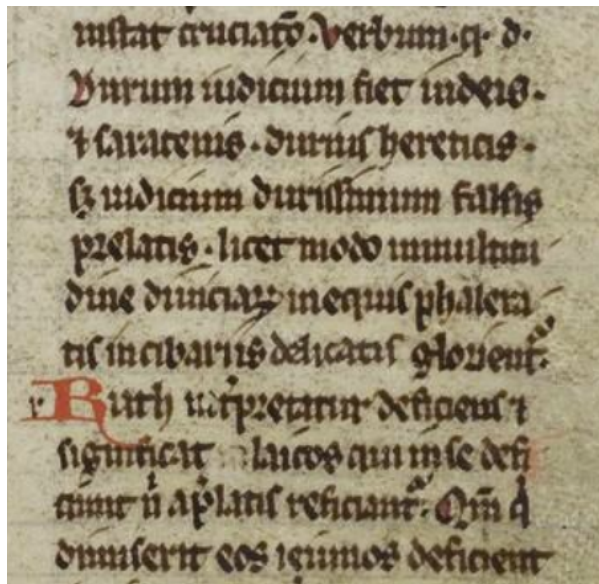 instat cruciatō. Verbum. q. d.
Durum iudicium fiet iudeis.
⁊ saracenis. durius hereticis.
sꝫ iudicium durissimum falsis
prelatis. licet modo inmultitu
dine diuiciaꝝ inequis phalera
tis incibariis delicatis glorient᷑.
r. Ruth int̛pretatur deficiens ⁊
significat laicos qui in se defi
ciunt n̄ a p̄latis reficiant᷑. Qm̄ q̄
dimiserit eos ieiunos deficient